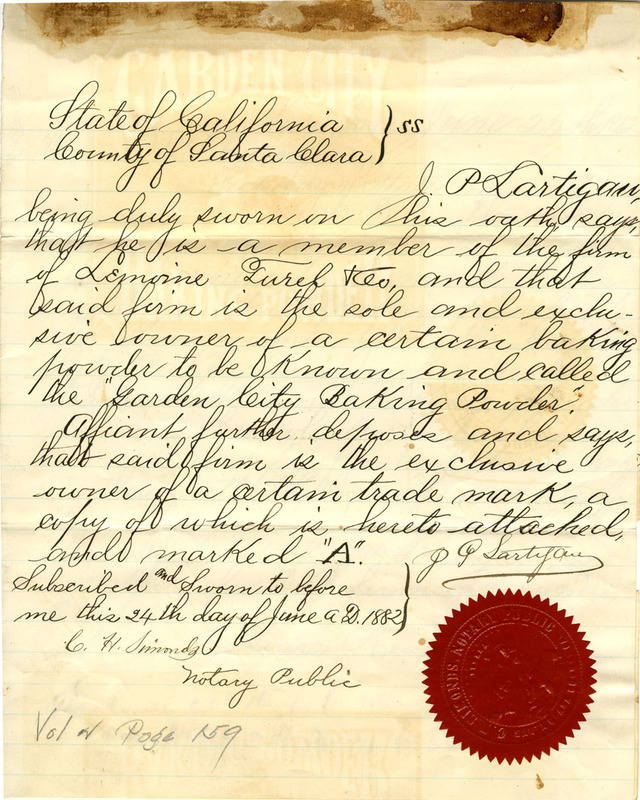 State of California } ss
County of Santa Clara
J. P. Lartigau
being duly sworn on his oath, says,
that he is a member of the firm
of Lemoine Turel & Co., and that
said firm is the sole and exclu-
sive owner of a certain baking
powder to be known and called
the "Garden City Baking Powder".
Affiant further deposes and says,
that said firm is the exclusive
owner of a certain trade mark, a
copy of which is hereto attached,
and marked "A".
J P Lartigau
Subscribed and Sworn to before
me this 24th day of June A.D. 1882
C. H. Simonds
Notary Public
Vol 4 Page 159